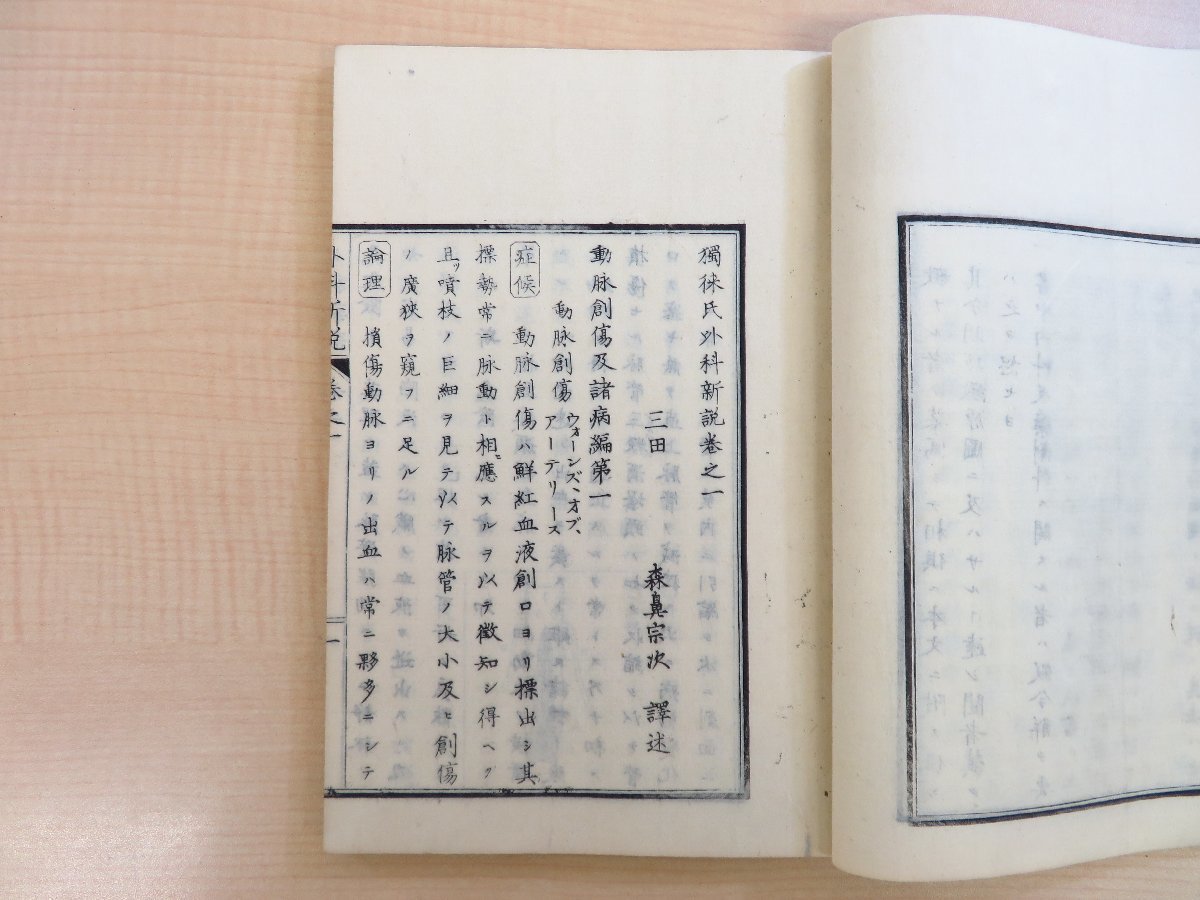 獨徠氏外科新説巻之一
三田 森鼻宗次 譯述
動脉創傷及諸病編第一
動脉創傷 ウォーンズ、オブ、アーテリース
症候 動脉創傷ハ鮮紅血液創口ヨリ標出シ其
標勢常ニ脉動ト相應スルヲ以テ徴知シ得ベク
且ツ噴枝ノ巨細ヲ見テ以テ脉管ノ大小及ヒ創傷
ノ廣狹ヲ窺フニ足ル
論理 損傷動脉ヨリノ出血ハ常ニ夥多ニシテ
外科新説 巻之一 一